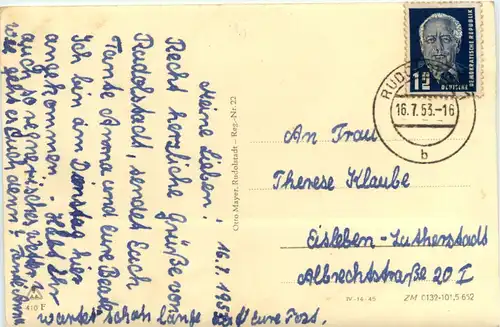 Meine Lieben!
16.7.1953
Recht herzliche Grüße von
Rudolstadt, sendet Euch
Tante Anna und eure Beate
Ich bin am Dienstag hier
angekommen - Habt Ihr
auch so regnerisches Wetter
wie geht es Euch denn? Tante Anna
wartet schon lange auf eure Post.
Otto Mayer, Rudolstadt - Reg.-Nr. 22
410 F
DEUTSCHE DEMOKRATISCHE REPUBLIK
12
16.7.53.-16
b
An Frau
Therese Klaube
Eisleben-Lutherstadt
Albrechtstraße 20 I
IV-14-45 ZM 0132-101,5 652